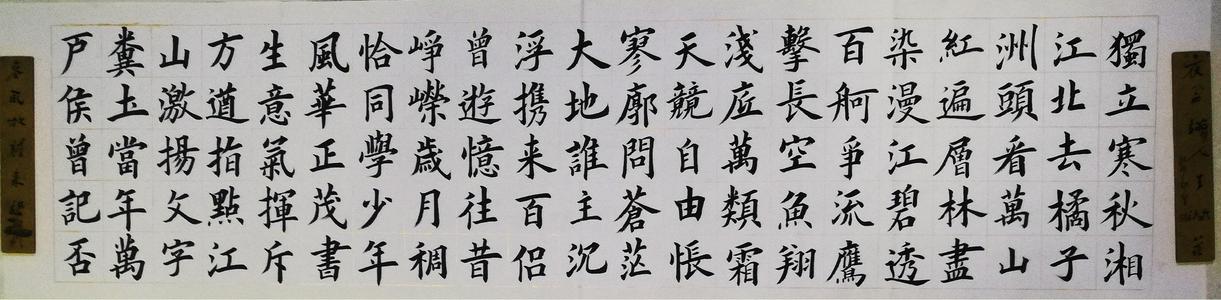 獨立寒秋湘
江北去橘子
洲頭看萬山
紅遍層林盡
染漫江碧透
百舸爭流鷹
擊長空魚翔
淺底萬類霜
天競自由悵
寥廓問蒼茫
大地誰主沉
浮携来百侣
曾遊憶往昔
崢嶸歲月稠
恰同學少年
風華正茂書
生意氣揮斥
方遒指點江
山激揚文字
糞土當年萬
戶侯曾記否